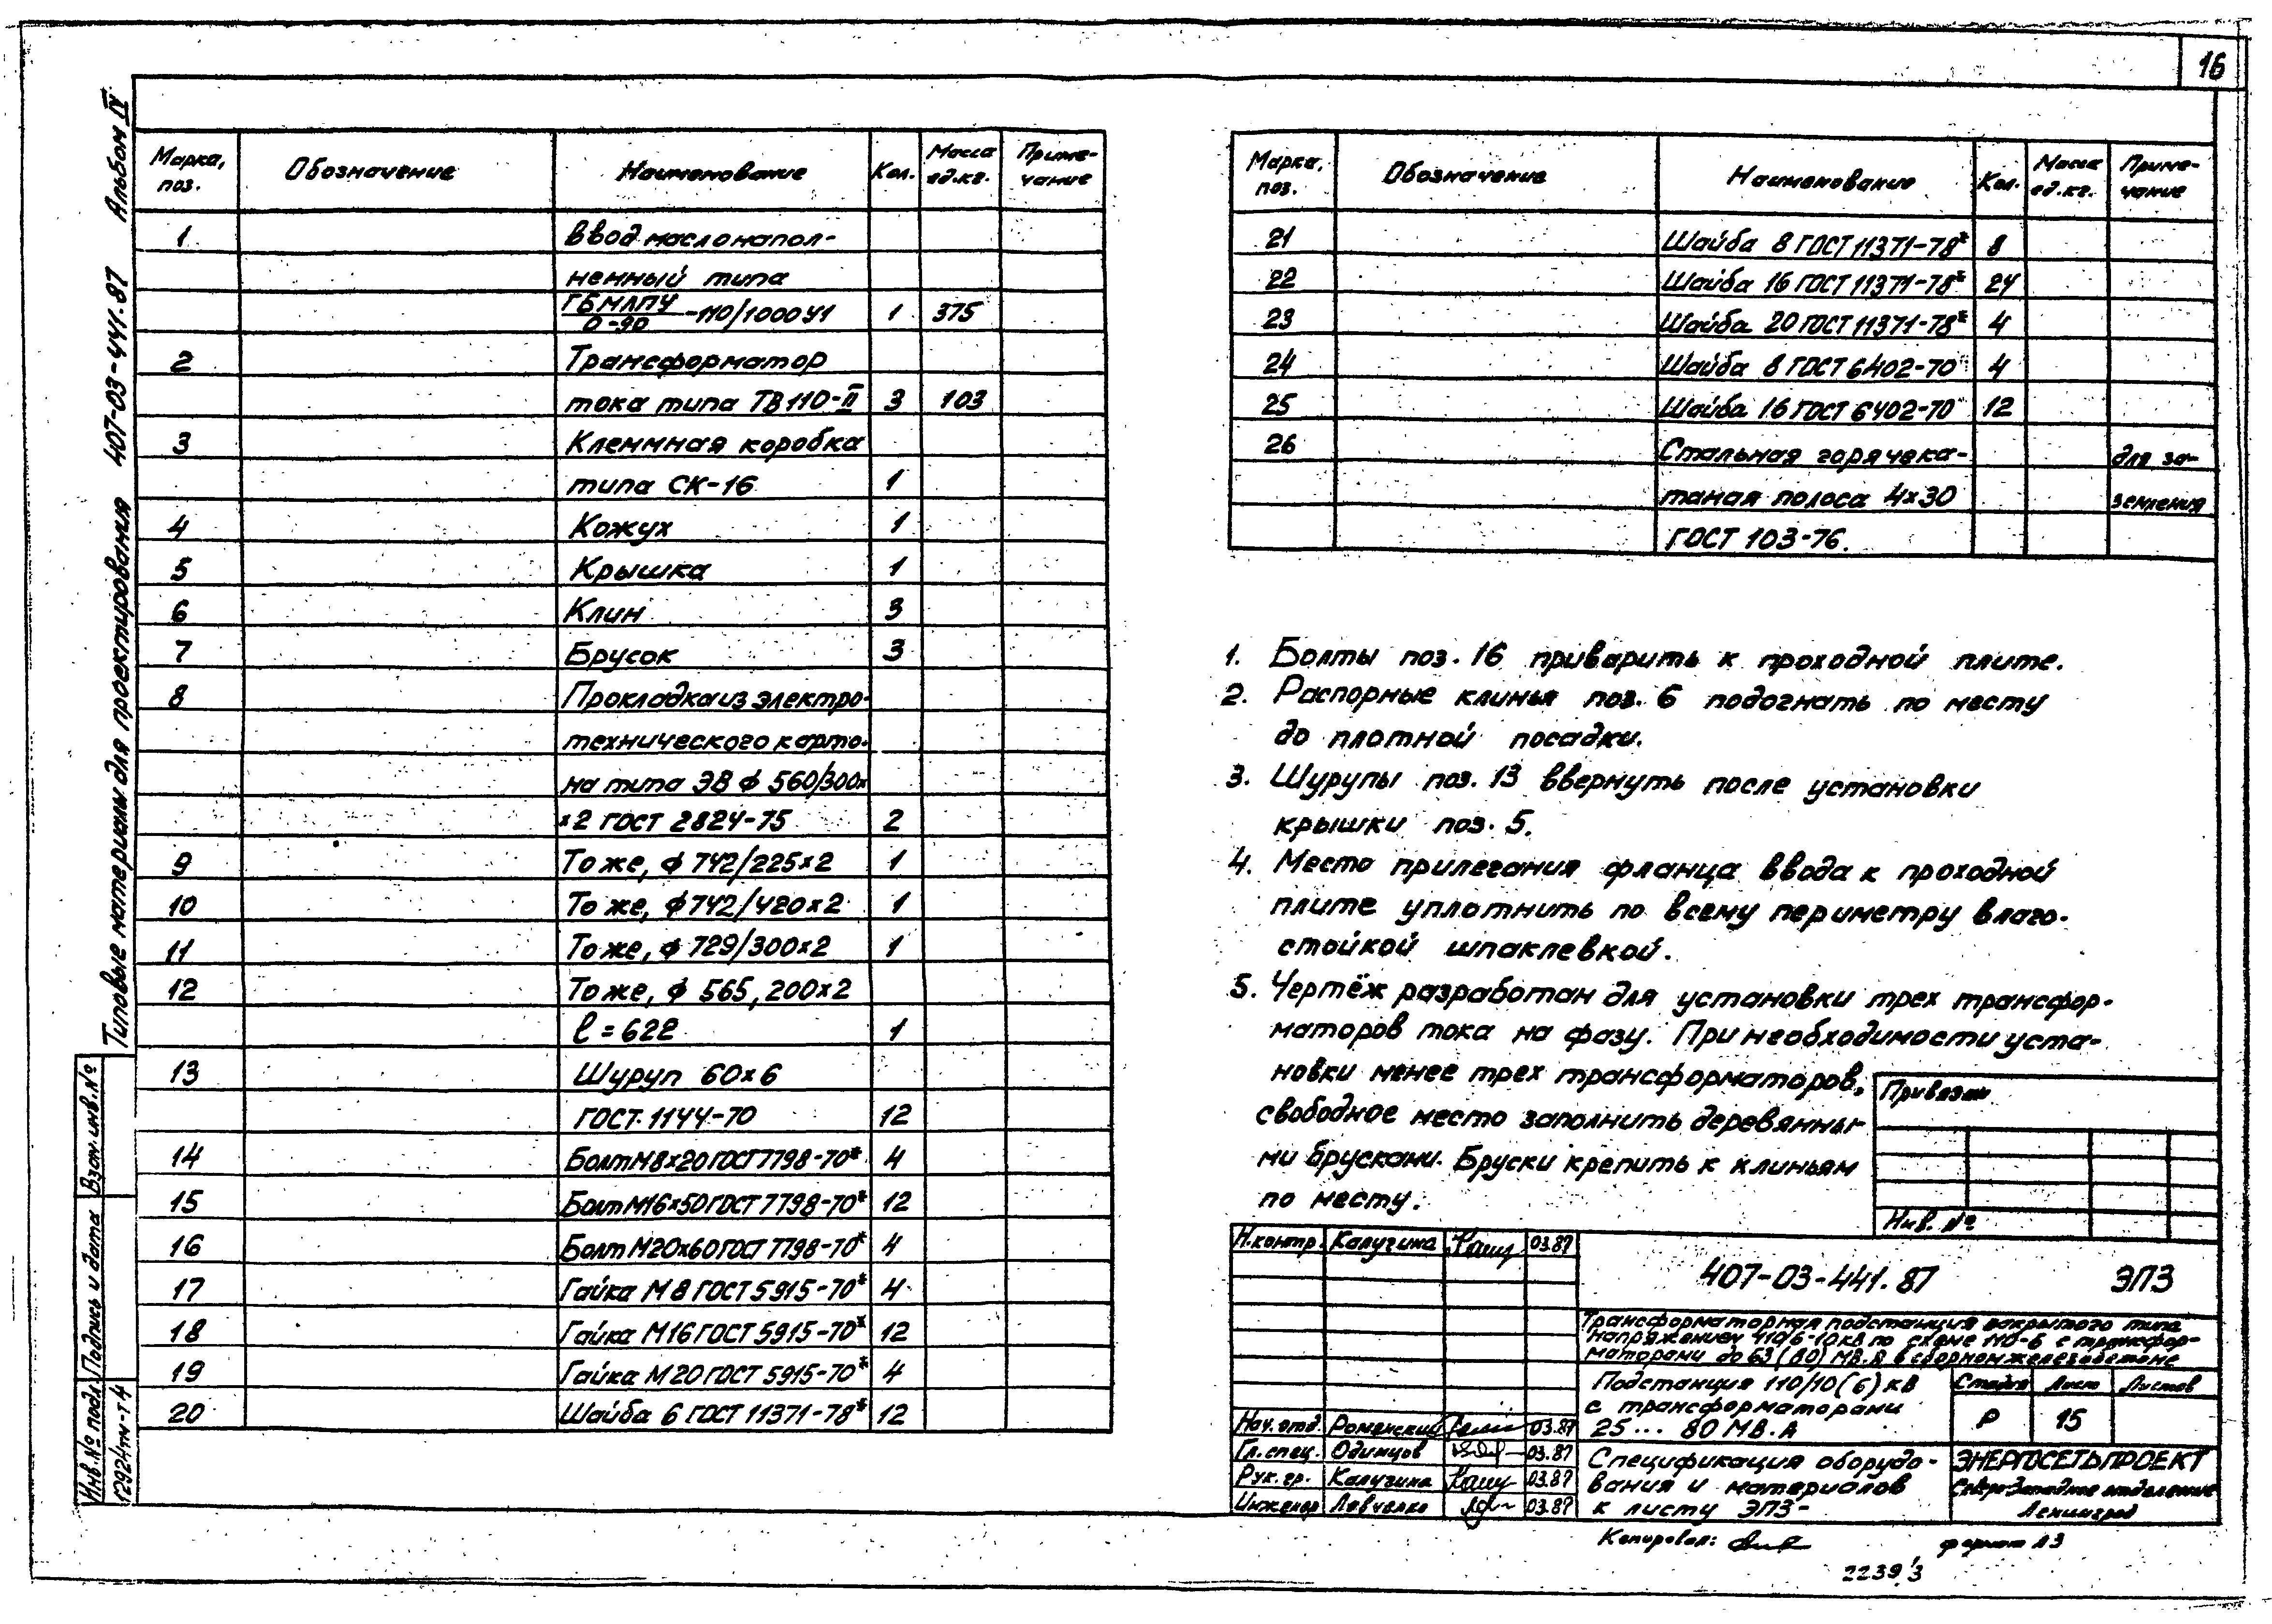 16
Альбом IV
407-03-441.87
Типовые материалы для проектирования
Взам. инв. №
Подпись и дата
Инв. № подл.
12924тм-т4
Марка, поз. Обозначение Наименование Кол. Масса ед.кг. Приме-чание
1 Ввод маслонапол-
ненный типа
ГБМЛПУ/0-90 -110/1000У1 1 375
2 Трансформатор
тока типа ТВ110-II 3 103
3 Клеммная коробка
типа СК-16 1
4 Кожух 1
5 Крышка 1
6 Клин 3
7 Брусок 3
8 Прокладка из электро-
технического карто-
на типа ЭВ ф 560/300х
х2 ГОСТ 2824-75 2
9 То же, ф 742/225х2 1
10 То же, ф 742/420х2 1
11 То же, ф 729/300х2 1
12 То же, ф 565, 200х2
ℓ = 622 1
13 Шуруп 60х6
ГОСТ 1144-70 12
14 Болт М8х20 ГОСТ 7798-70* 4
15 Болт М16х50 ГОСТ 7798-70* 12
16 Болт М20х60 ГОСТ 7798-70* 4
17 Гайка М8 ГОСТ 5915-70* 4
18 Гайка М16 ГОСТ 5915-70* 12
19 Гайка М20 ГОСТ 5915-70* 4
20 Шайба 6 ГОСТ 11371-78* 12
Марка, поз. Обозначение Наименование Кол. Масса ед.кг. Приме-чание
21 Шайба 8 ГОСТ 11371-78* 8
22 Шайба 16 ГОСТ 11371-78* 24
23 Шайба 20 ГОСТ 11371-78* 4
24 Шайба 8 ГОСТ 6402-70 4
25 Шайба 16 ГОСТ 6402-70 12
26 Стальная горячека- для за-
таная полоса 4х30 земления
ГОСТ 103-76.
1. Болты поз. 16 приварить к проходной плите.
2. Распорные клинья поз. 6 подогнать по месту
до плотной посадки.
3. Шурупы поз. 13 ввернуть после установки
крышки поз. 5.
4. Место прилегания фланца ввода к проходной
плите уплотнить по всему периметру влаго-
стойкой шпаклевкой.
5. Чертёж разработан для установки трех трансфор-
маторов тока на фазу. При необходимости уста-
новки менее трех трансформаторов,
свободное место заполнить деревянны-
ми брусками. Бруски крепить к клиньям
по месту.
Привязан
Инв. №
Н.контр. Калугина 03.87
407-03-441.87 ЭПЗ
Трансформаторная подстанция закрытого типа
напряжением 110/6-10кВ по схеме 110-6 с трансфор-
маторами до 63(80) МВ.А в сборном железобетоне
Подстанция 110/10(6)кВ
с трансформаторами
25... 80 МВ.А
Стадия Лист Листов
Р 15
Нач.отд. Роменский 03.87
Гл.спец. Одинцов 03.87
Рук.гр. Калугина 03.87
Инженер Левченко 03.87
Спецификация оборудо-
вания и материалов
к листу ЭПЗ-
ЭНЕРГОСЕТЬПРОЕКТ
Северо-Западное отделение
Ленинград
Копировал:
формат А3
2239/3